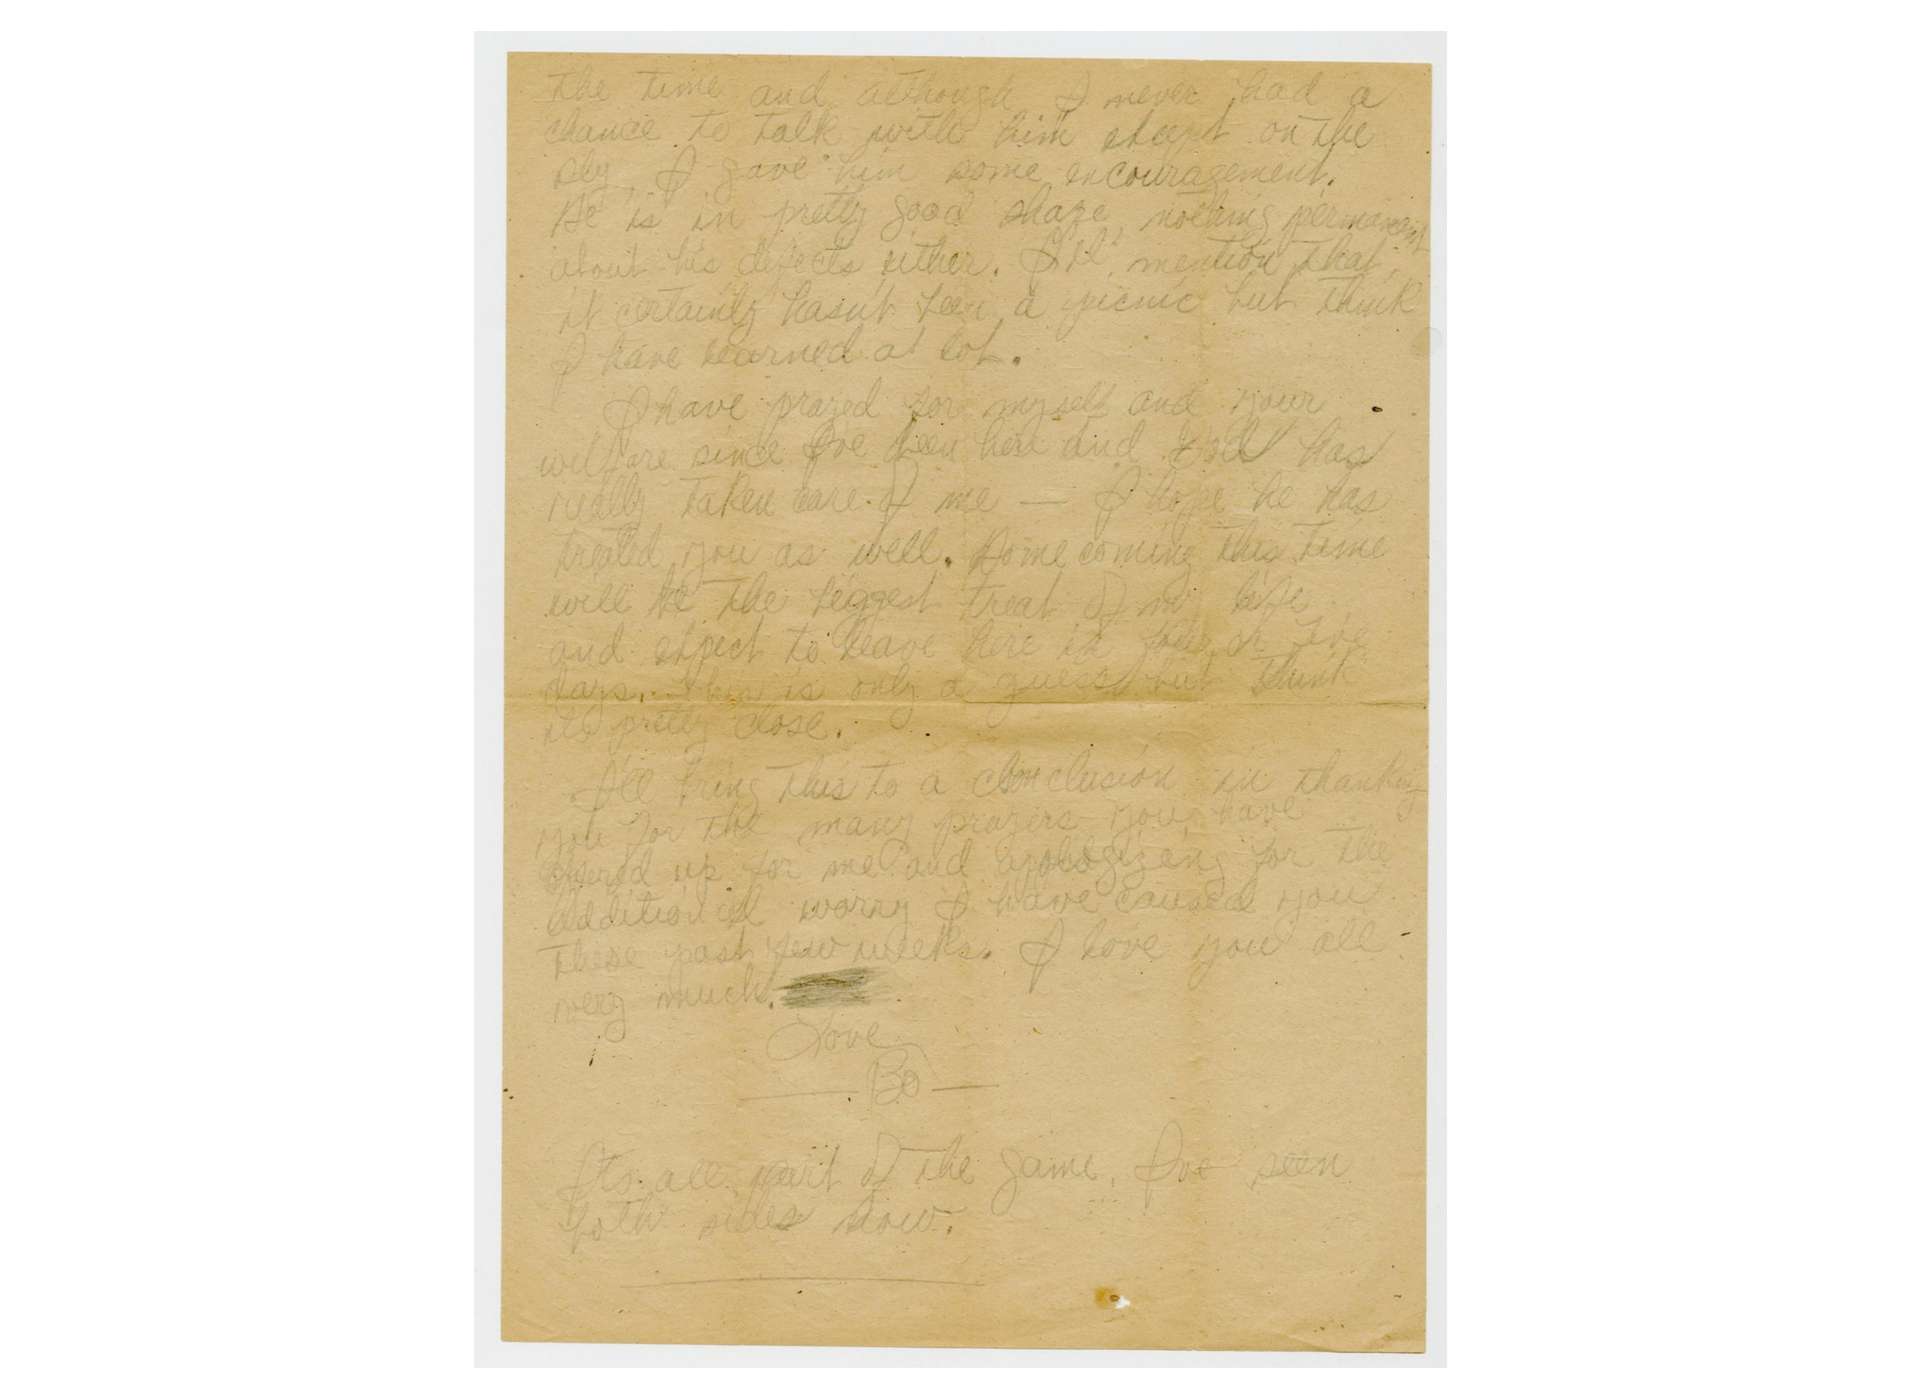 the time and although I never had a
chance to talk with him except on the
sly, I gave him some encouragement.
He is in pretty good shape nothing permanent
about his defects either. I'll mention that,
it certainly hasn't been a picnic but think
I have learned at lot.
I have prayed for myself and your
welfare since I've been here and God has
really taken care of me — I hope he has
treated you as well. Homecoming this time
will be the biggest treat of my life
and expect to leave here in four or five
days. This is only a guess but think
its pretty close.
I'll bring this to a conclusion in thanking
you for the many prayers you have
offered up for me and apologizing for the
additional worry I have caused you
these past few weeks. I love you all
very much.
Love
— Bo —
Its all part of the game. I've seen
both sides now.